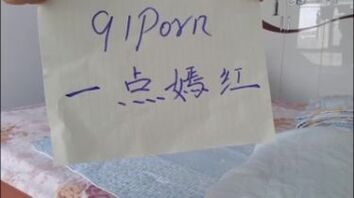 91Porn
一点嫣红